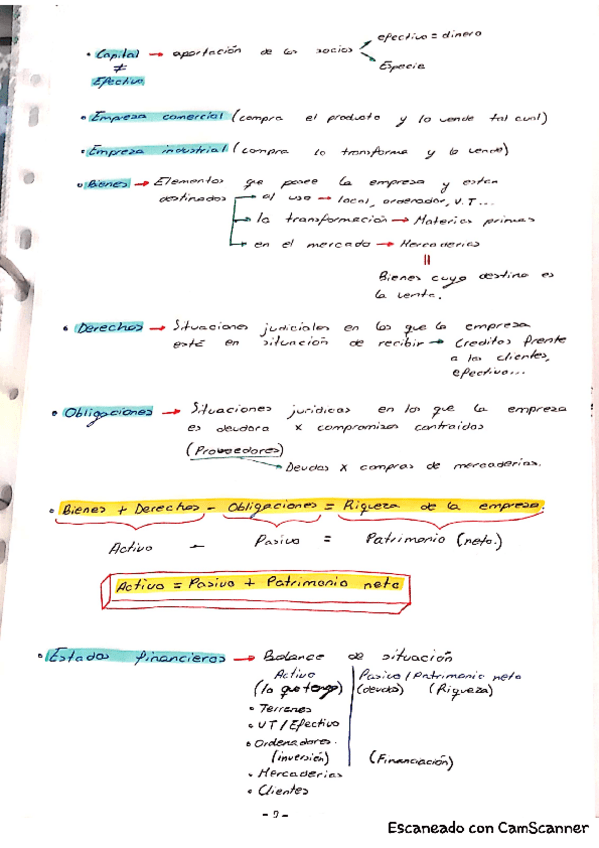 efectivo = dinero
• Capital → aportación de los socios
≠ Especie
Efectivo
• Empresa comercial (compra el producto y lo vende tal cual)
• Empresa industrial (compra lo transforma y lo vende)
• Bienes → Elementos que posee la empresa y estan
destinados al uso → local, ordenador, V.T...
la transformación → Materias primas
en el mercado → Mercaderias
=
Bienes cuyo destino es
la venta.
• Derechos → Situaciones judiciales en las que la empresa
esté en situación de recibir → Creditos frente
a los clientes,
efectivo...
• Obligaciones → Situaciones juridicas en los que la empresa
es deudora x compromisos contraidos
(Proveedores)
Deudas x compras de mercaderias.
• Bienes + Derechos - Obligaciones = Riqueza de la empresa.
Activo - Pasivo = Patrimonio (neto.)
Activo = Pasivo + Patrimonio neto
• Estados financieros → Balance de situación
Activo Pasivo / Patrimonio neto
(lo que tengo) (deudas) (Riqueza)
• Terrenos
• VT / Efectivo
• Ordenadores.
(inversión) (Financiación)
• Mercaderias
• Clientes
Escaneado con CamScanner